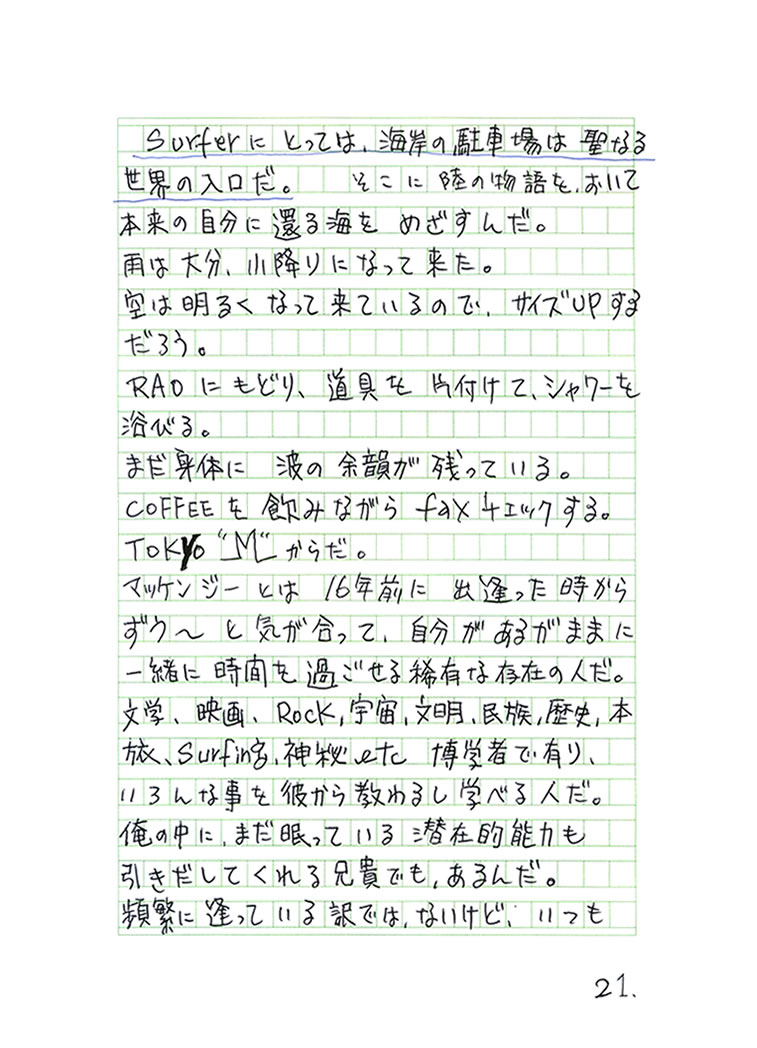 Surferにとっては、海岸の駐車場は聖なる
世界の入口だ。 そこに陸の物語を、おいて
本来の自分に還る海を めざすんだ。
雨は大分、小降りになって来た。
空は明るくなって来ているので、サイズUPする
だろう。
RAOにもどり、道具を片付けて、シャワーを
浴びる。
まだ身体に 波の余韻が残っている。
COFFEEを飲みながら faxチェックする。
TOKYO "M" からだ。
マッケンジーとは 16年前に 出逢った時から
ずう〜と気が合って、自分があるがままに
一緒に時間を過ごせる稀有な存在の人だ。
文学、映画、RocK,宇宙,文明,民族,歴史,本
旅、Surfing,神秘,etc 博学者で有り、
いろんな事を彼から教わるし学べる人だ。
俺の中に、まだ眠っている潜在的能力も
引きだしてくれる兄貴でも,あるんだ。
頻繁に逢っている訳では,ないけど、いつも
21.